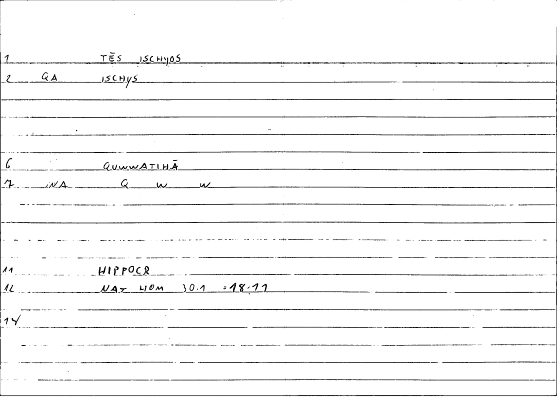 1 TĒS ISCHYOS
2 GA ISCHYS
6 QUWWATIHĀ
7 NA Q W W
11 HIPPOCR
12 NAT HOM 30.1 = 18.11
14